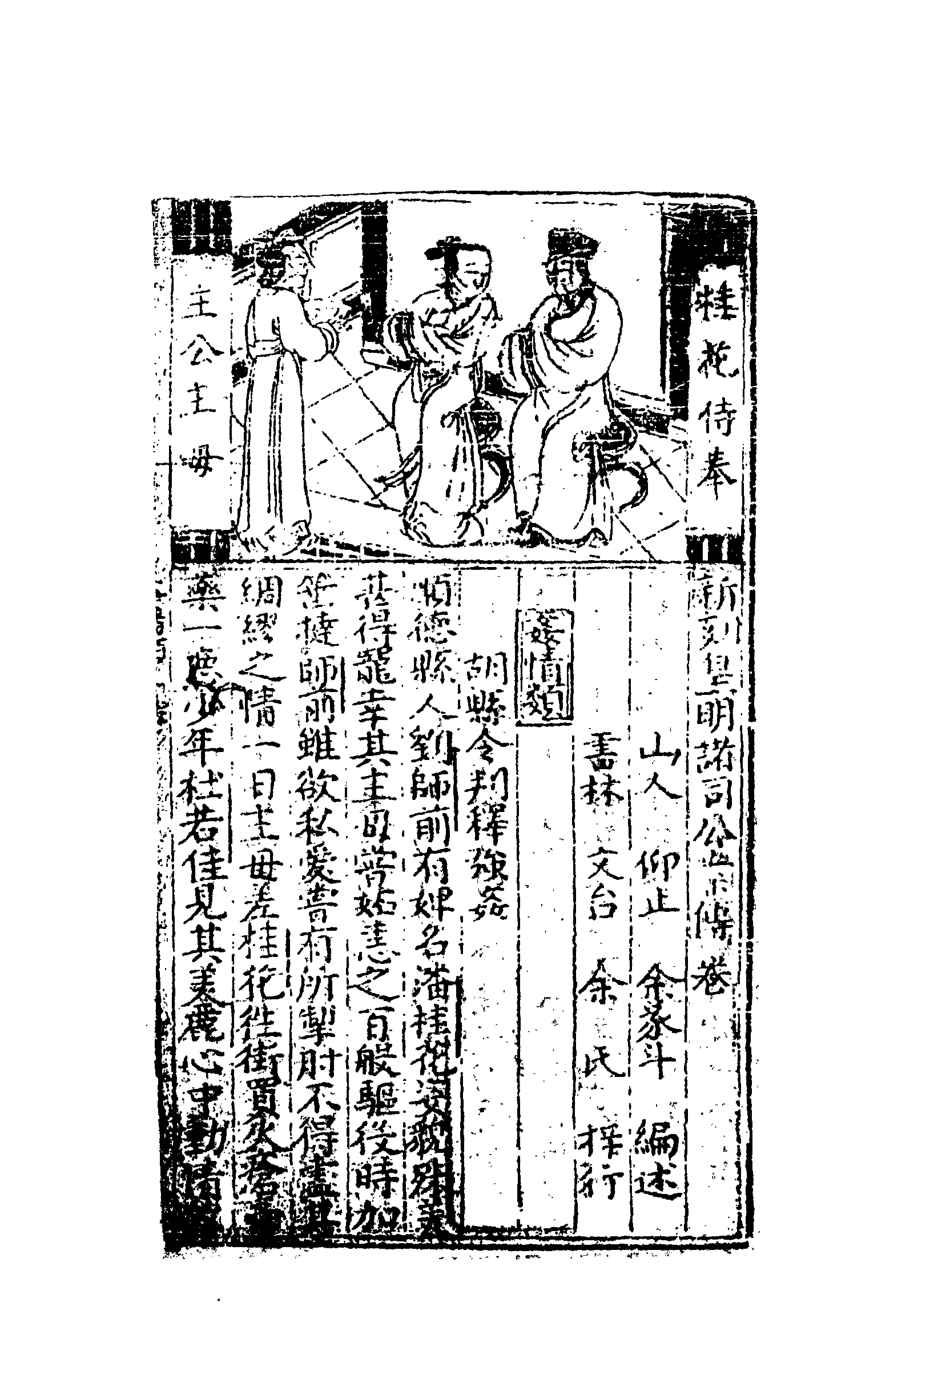 桂花侍奉
主公主母
新刻皇明諸司公案 卷
山人 仰止 余象斗 編述
書林 文台 余氏 梓行
姦情類
胡縣令判釋強姦
順德縣人劉師前有婢名潘桂花姿貌殊美
甚得寵幸其主母嘗妬恚之百般驅役時加
箠撻師前雖欲私愛嘗有所掣肘不得盡其
綢繆之情一日主母差桂花徃街買
藥一 少年杜若佳見其美麗心中動情